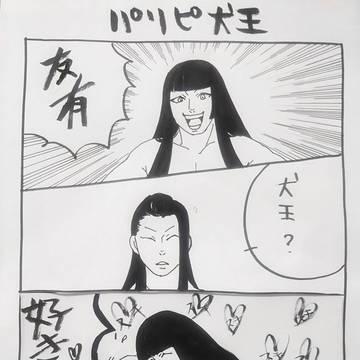 パリピ犬王
友有
犬王?
好き